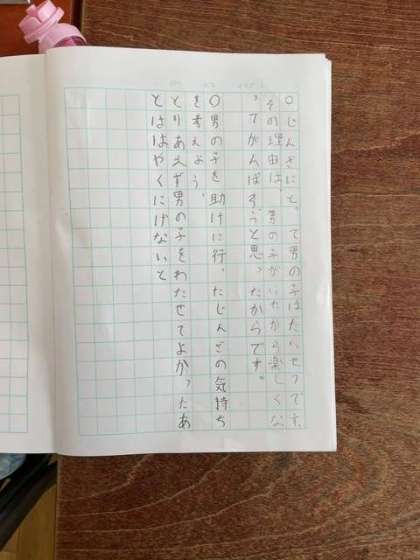 ○じんざにとって男の子はたいせつです。
その理由は、男の子がいたから楽しくな
ってがんばろうと思ったからです。
○男の子を助けに行ったじんざの気持ち
を考えよう。
とりあえず男の子をわたせてよかったあ
とははやくにげないと